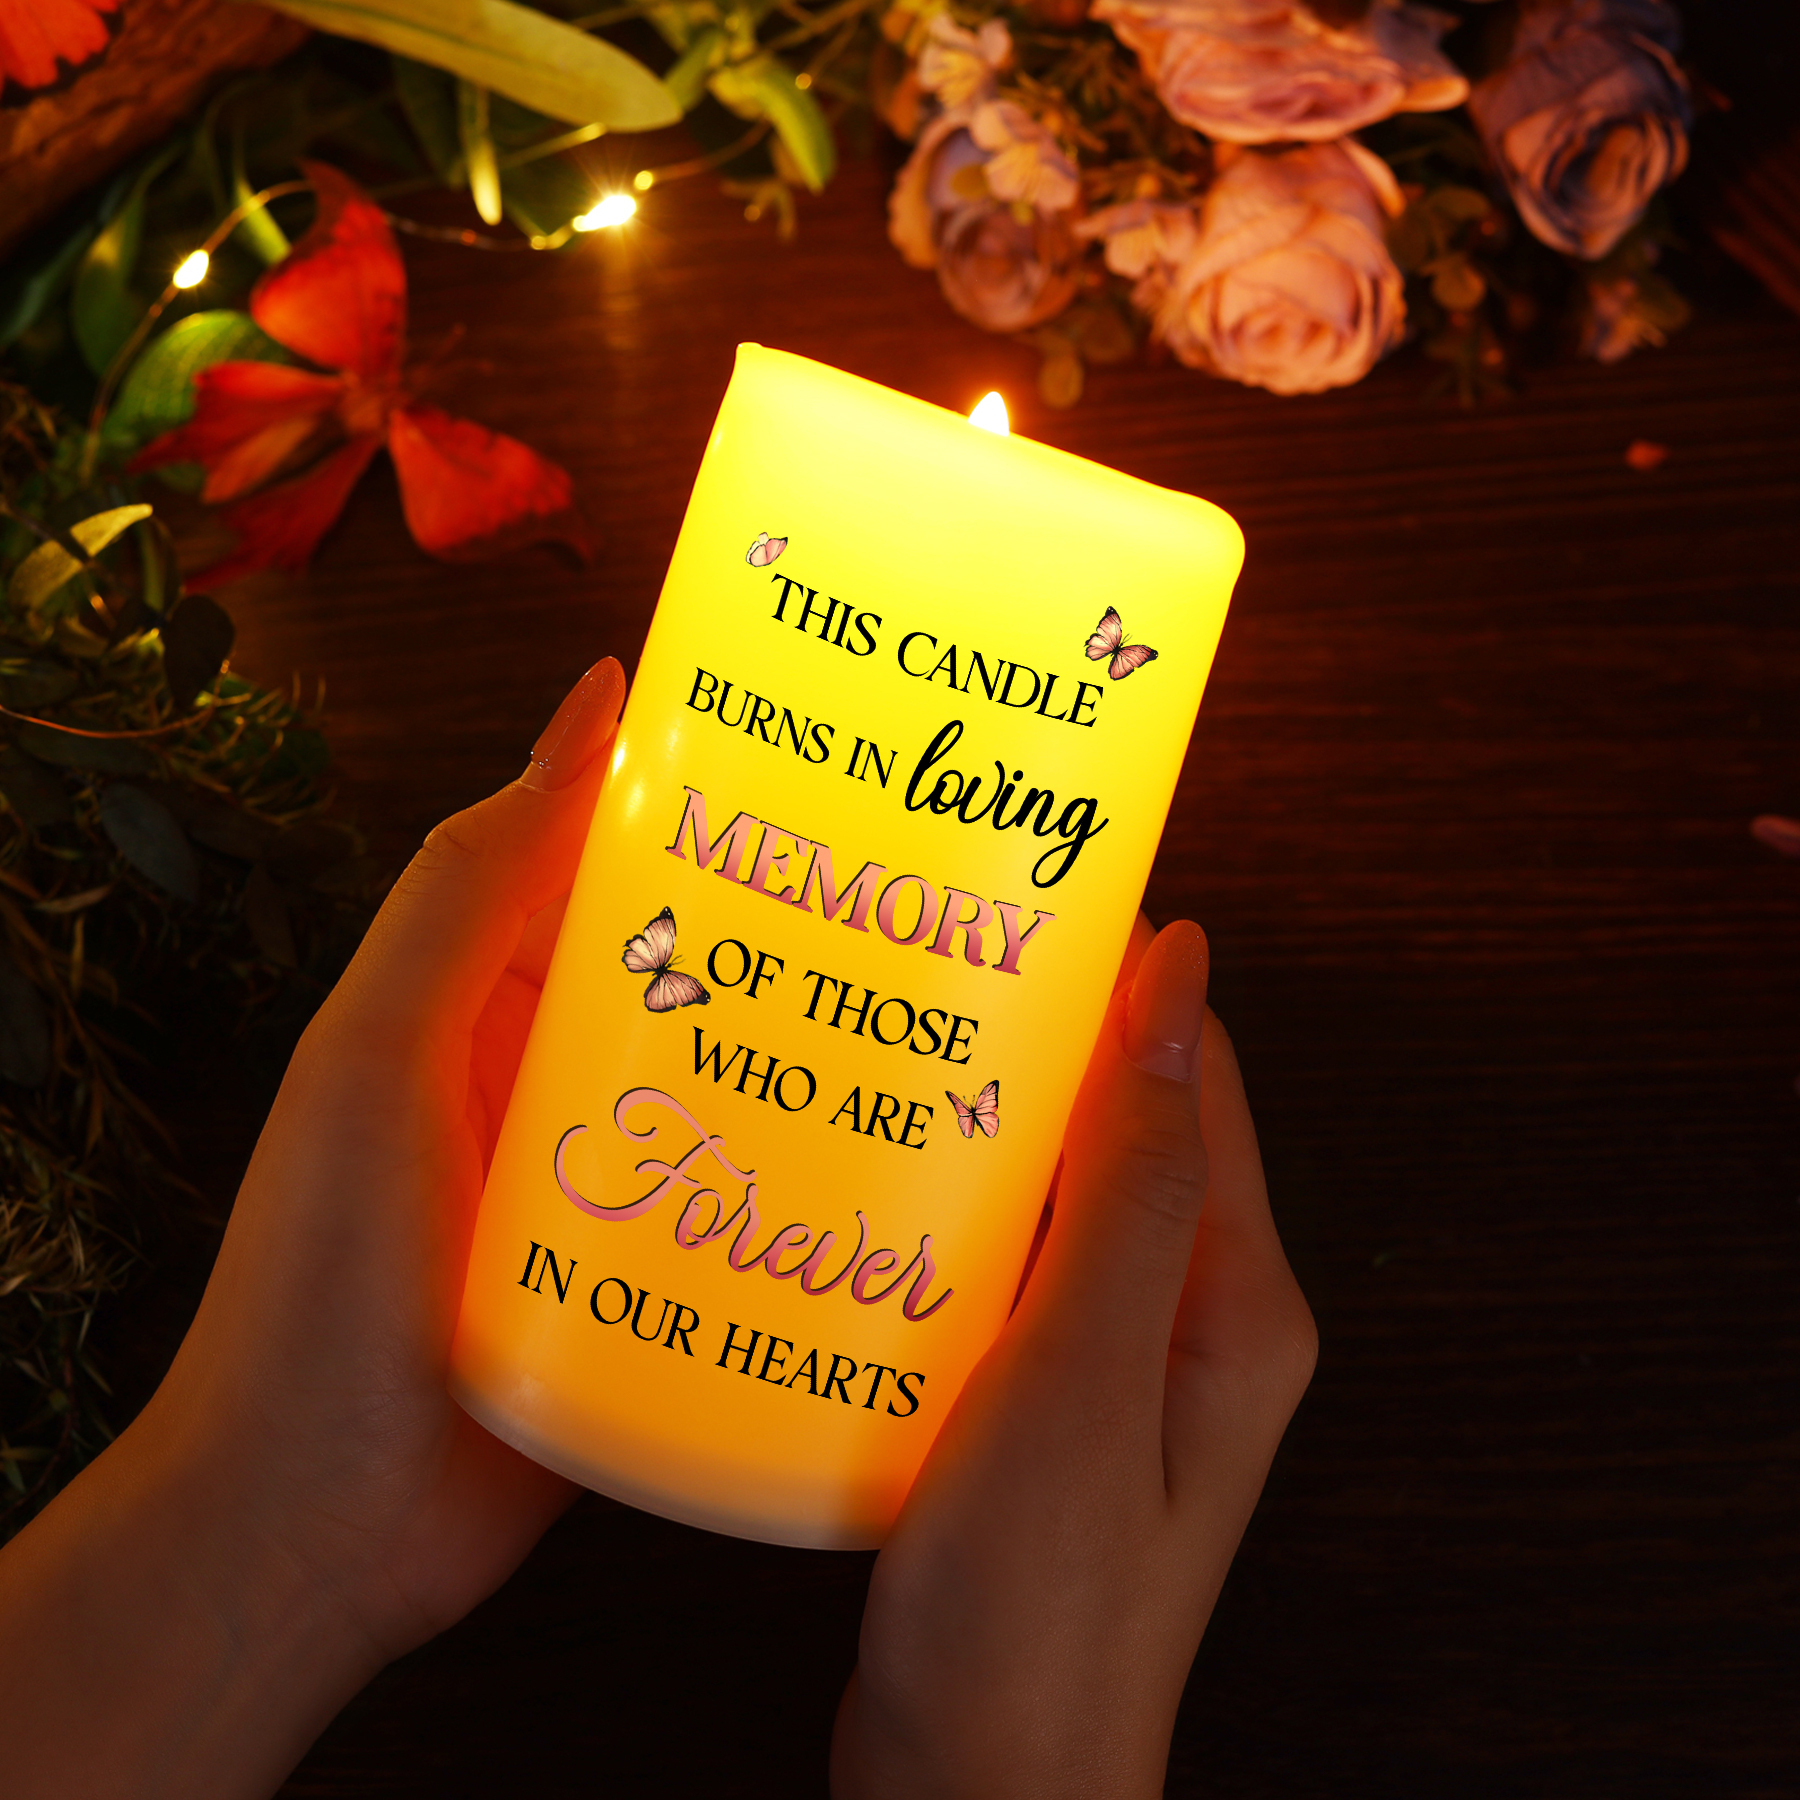 THIS CANDLE
BURNS IN loving
MEMORY
OF THOSE
WHO ARE
Forever
IN OUR HEARTS